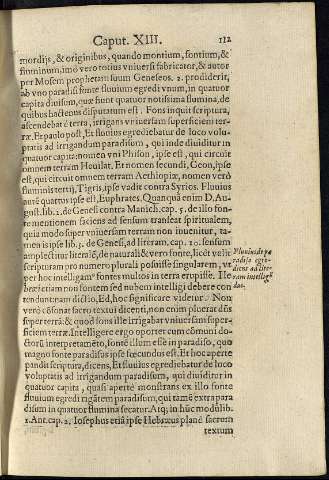 Caput. XIII. 112
mordijs, & originibus, quando montium, fontium, &
fluminum, imo vero totius vniuersi fabricator, & autor
per Mosem prophetam suum Geneseos. 2. prodiderit,
ab vno paradisi fonte fluuium egredi vnum, in quatuor
capita diuisum, quæ sunt quatuor notissima flumina, de
quibus hactenus disputatum est. Fons inquit scriptura,
ascendebat è terra, irrigans vniuersam superficiem ter-
ræ. Et paulo post, Et fluuius egrediebatur de loco volu-
ptatis ad irrigandum paradisum, qui inde diuiditur in
quatuor capita: nomen vni Phison, ipse est, qui circuit
omnem terram Heuilat. Et nomen secundi, Geon, ipse
est, qui circuit omnem terram Aethiopiæ, nomen verò
fluminis tertij, Tigris, ipse vadit contra Syrios. Fluuius
autē quartus ipse est, Euphrates. Quanquā enim D. Au-
gust. lib. 2. de Genesi contra Manich. cap. 5. de illo fon-
te mentionem faciens ad sensum transfeat spiritualem,
quia modo super vniuersam terram non inuenitur, ta-
men is ipse lib. 5. de Genesi, ad literam, cap. 10. sensum
amplectitur literalē, de naturali & vero fonte, licet velit
scripturam pro numero plurali posuisse singularem, vt
per hoc intelligam' fontes multos in terra erupisse. He
bræi etiam non fontem sed nubem intelligi debere con
tendunt: nam dictio, Ed, hoc significare videtur. Non
vero cōsonat sacro textui dicenti, non enim pluerat dñs
super terrā: & quod fons ille irrigabat vniuersam super-
ficiem terræ. Intelligere ergo oportet cum cōmuni do-
ctorū interpretamēto, fontē illum esse in paradiso, quo
magno fonte paradisus ipse fœcundus est. Et hoc aperte
pandit scriptura, dicens, Et fluuius egrediebatur de loco
voluptatis ad irrigandum paradisum, qui diuiditur in
quatuor capita, quasi apertè monstrans ex illo fonte
fluuium egredi rigātem paradisum, qui tamē extra para
disum in quatuor flumina secatur. Atq; in hūc modū lib.
1. Ant. cap. 2. Iosephus etiā ipse Hebræus planè sacrum
textum
Fluuios de pa
radiso egre-
diens ad lite-
ram intelligē
dos.